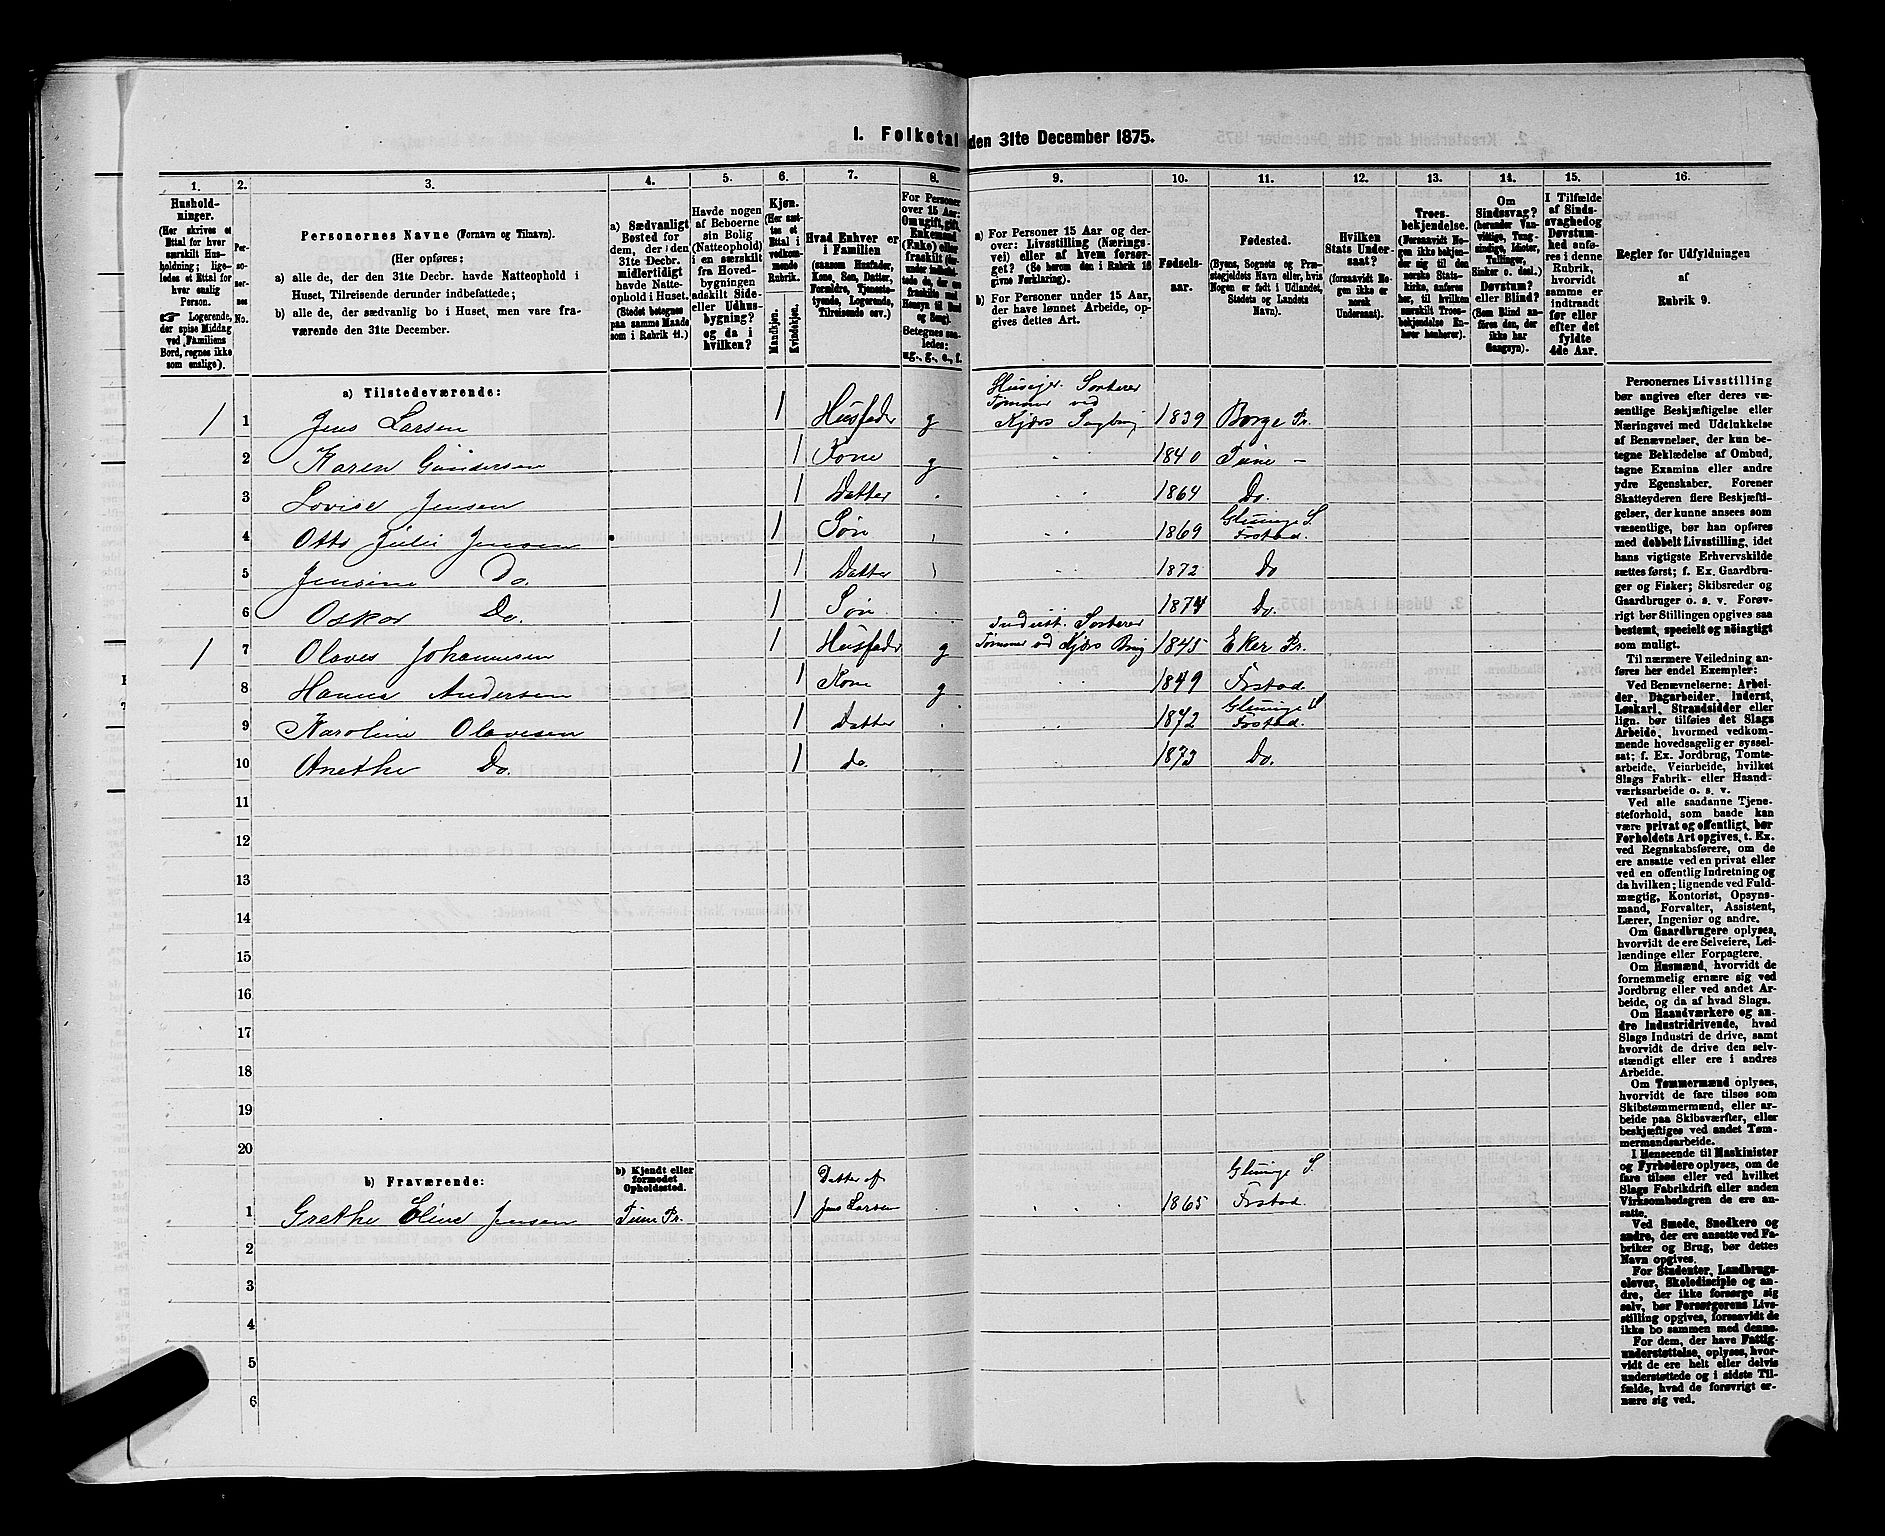 I. Folketal den 31te December 1875.
1. 2. 3. 4. 5. 6. 7. 8. 9. 10. 11. 12. 13. 14. 15. 16.
Hushold-
ninger.
(Her skrives et
Ettal for hver
særskilt Hus-
holdning; lige-
ledes et Ettal for
hver enslig
Person.
☞ Logerende,
der spise Middag
ved Familiens
Bord, regnes ikke
som enslige).
Per-
so-
ner-
nes
No.
Personernes Navne (Fornavn og Tilnavn).
(Her opføres:
a) alle de, der den 31te Decbr. havde Natteophold i
Huset, Tilreisende derunder indbefattede;
b) alle de, der sædvanlig bo i Huset, men vare fra-
værende den 31te December.
a) Sædvanligt
Bosted for
dem, der den
31te Decbr.
midlertidigt
havde Natte-
ophold i Huset.
(Stedet betegnes
paa samme Maade
som i Rubrik 11.)
Havde nogen
af Beboerne
sin Bolig
(Natteophold)
i en særskilt
fra Hoved-
bygningen
adskilt Side-
eller Udhus-
bygning?
og da i
hvilken?
Kjøn.
(Her sæt-
tes et
Ettal i
vedkom-
mende
Rubrik.
Mandkjøn.
Kvindekjøn.
Hvad Enhver er
i Familien
(saasom Husfader,
Kone, Søn, Datter,
Forældre, Tjeneste-
tyende, Logerende,
Tilreisende osv.)
For Personer
over 15 Aar:
Om ugift, gift,
Enkemand
(Enke) eller
fraskilt
Betegnes saa-
ledes:
ug., g., e., f.
a) For Personer 15 Aar og der-
over: Livsstilling (Nærings-
vei) eller af hvem forsør-
get? (Se herom den i Rubrik 16
givne Forklaring).
b) For Personer under 15 Aar,
der have lønnet Arbeide, op-
gives dettes Art.
Fødsels-
aar.
Fødested.
(Byens, Sognets og Præ-
stegjeldets Navn eller, hvis
Nogen er født i Udlandet,
Stedets og Landets
Navn).
Hvilken
Stats Under-
saat?
(forsaavidt No-
gen ikke er
norsk
Undersaat).
Troes-
bekjendelse.
(Forsaavidt No-
gen ikke bekjen-
der sig til den
norske Stats-
kirke, anføres
her, til hvilken
særskilt Troes-
bekjendelse En-
hver henhører).
Om
Sindssvag?
(herunder Van-
vittige, Tung-
sindige, Idioter,
Tullinger,
Sinker o. desl.)
Døvstum?
eller Blind?
(Som Blind an-
føres den, der
ikke har
Gangsyn).
I Tilfælde
af Sinds-
svaghed og
Døvstum-
hed anfø-
res i denne
Rubrik,
hvorvidt
samme er
indtraadt
før eller
efter det
fyldte
4de Aar.
Regler for Udfyldningen
af
Rubrik 9.
a) Tilstedeværende:
Husejer. Sorterer
Tømmer ved
1 1 Jens Larsen 1 Husfader g Kjærs Sagbrug 1839 Borge Pr.
2 Karen Gundersen 1 Kone g 1840 Tune —
3 Lovise Jensen 1 Datter 1864 Do.
4 Otto Juliu Jensen 1 Søn 1869 Glemminge S. Frstad.
5 Jensine Do. 1 Datter 1872 Do
6 Oskar Do. 1 Søn 1874 Do.
Inderst. Sorterer
1 7 Olaves Johannesen 1 Husfader g Tømmer ved Kjærs Brug 1845 Eker Pr.
8 Hanna Andersen 1 Kone g 1849 Frstad.
9 Karoline Olavesen 1 Datter 1872 Glemminge S Frstad.
10 Anethe Do. 1 do. 1873 Do.
11
12
13
14
15
16
17
18
19
20
b) Fraværende:
b) Kjendt eller
formodet
Opholdssted.
1 Grethe Eline Jensen Tune Pr. 1 Datter af Jens Larsen 1865 Glemminge S. Frstad.
2
3
4
5
6
Personernes Livsstilling
bør angives efter deres væ-
sentlige Beskjæftigelse eller
Næringsvei med Udelukkelse
af Benævnelser, der kun be-
tegne Beklædelse af Ombud,
tagne Examina eller andre
ydre Egenskaber. Forener
Skatteyderen flere Beskjæfti-
gelser, der kunne ansees som
væsentlige, bør han opføres
med dobbelt Livsstilling, idet
hans vigtigste Erhvervskilde
sættes først; f. Ex. Gaardbru-
ger og Fisker; Skibsreder og
Gaardbruger o. s. v. Forøv-
rigt bør Stillingen opgives saa
bestemt, specielt og nöiagtigt
som muligt.
Til nærmere Veiledning an-
føres her endel Exempler:
Ved Benævnelserne: Arbei-
der, Dagarbeider, Inderst,
Løskarl, Strandsidder eller
lign. bør tilføies det Slags
Arbeide, hvormed vedkom-
mende hovedsagelig er syssel-
sat; f. Ex. Jordbrug, Tomte-
arbeide, Veiarbeide, hvilket
Slags Fabrik- eller Haand-
værksarbeide o. s. v.
Ved alle saadanne Tjene-
steforhold, som baade kan
være privat og offentligt, bør
Forholdets Art opgives, t. Ex.
ved Regnskabsførere, om de
ere ansatte ved en privat eller
ved en offentlig Indretning og
da hvilken; lignende ved Fuld-
mægtig, Kontorist, Opsyns-
mand, Forvalter, Assistent,
Lærer, Ingeniør og andre.
Om Gaardbrugere oplyses,
hvorvidt de ere Selveiere, Lei-
lændinge eller Forpagtere.
Om Husmænd, hvorvidt de
fornemmelig ernære sig ved
Jordbrug eller ved andet Ar-
beide, og da af hvad Slags.
Om Haandværkere og an-
dre Industridrivende, hvad
Slags Industri de drive, samt
hvorvidt de drive den selv-
stændigt eller ere i andres
Arbeide.
Om Tømmermænd oplyses,
hvorvidt de fare tilsøs som
Skibstømmermænd, eller ar-
beide paa Skibsværfter, eller
beskjæftiges ved andet Tøm-
mermandsarbeide.
I Henseende til Maskinister
og Fyrbødere oplyses, om de
fare tilsøs eller ved hvilket
Slags Fabrikdrift eller anden
Virksomhedsgren de ere an-
satte.
Ved Smede, Snedkere og
andre, der ere ansatte ved Fa-
briker og Brug, bør dettes
Navn opgives.
For Studenter, Landbrugs-
elever, Skoledisciple og an-
dre, der ikke forsørge sig
selv, bør Forsørgerens Livs-
stilling opgives, forsaavidt de
ikke bo sammen med denne.
For dem, der have Fattig-
understøttelse, oplyses, hvor-
vidt de ere helt eller delvis
understøttede og i sidste Til-
fælde, hvad de forøvrigt er-
nære sig ved.